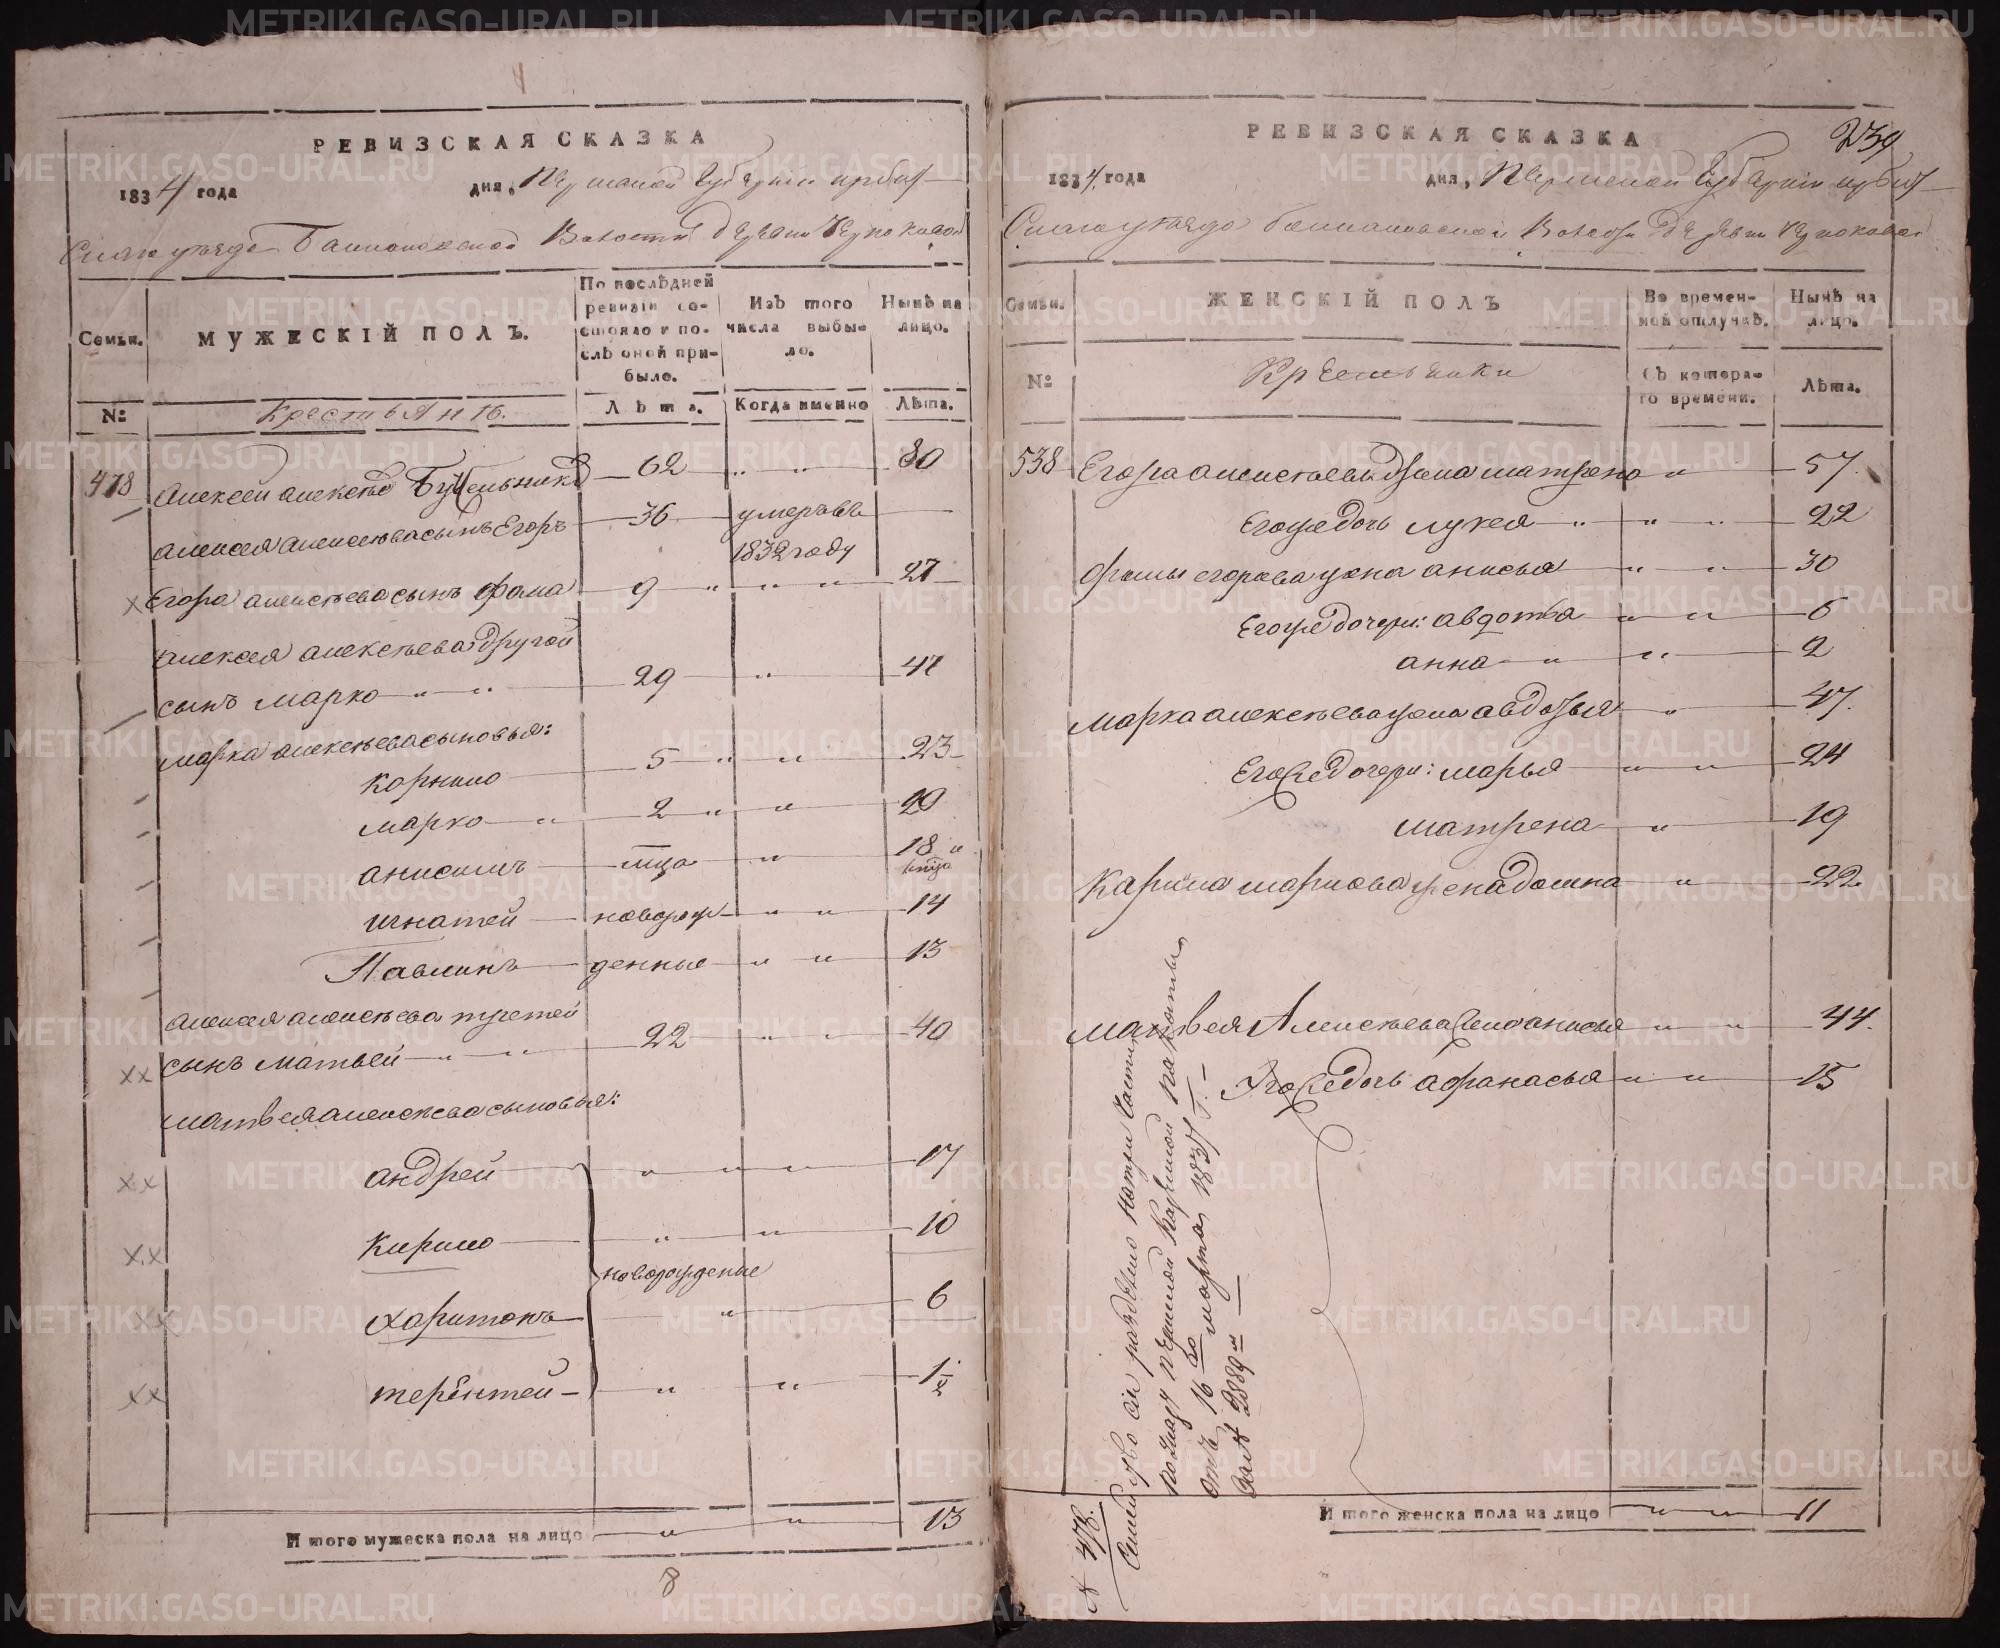 РЕВИЗСКАЯ СКАЗКА
1834 года дня, Пермской Губернии ирбит-
скаго уезда Волости деревни
Семьи.
МУЖЕСКІЙ ПОЛЪ.
По послѣдней ревизіи состояло и послѣ оной прибыло.
Изъ того числа выбыло.
Нынѣ на лицо.
№
Крестьянъ.
Лѣта.
Когда именно
Лѣта.
478 Алексей алексеевъ 62 „ „ 80
Алексея Алексеева сынъ Егоръ 36 умеръ въ
1832 году
Егора алексеева сынъ фома 9 „ „ „ 27
Алексея алексеева другой
сынъ марко „ „ 29 „ 47
марка алексеева сыновья:
Корнило 5 „ „ 23
марко „ 2 „ „ 20
анисимъ мца „ 18 и
игнатей новорож- „ „ 14
Павлинъ денные „ „ 13
Алексея алексеева третей
сынъ матвей „ „ 22 „ „ 40
матвея алексеева сыновья:
андрей „ „ „ 17
Кирило „ „ 10
новорожденые
харитонъ „ 6
терентей „ „ 1
Итого мужеска пола на лицо „ „ 13
8
РЕВИЗСКАЯ СКАЗКА
239
1834 года дня, Пермской Губернии ирбит-
скаго уезда Волости деревни
Семьи.
ЖЕНСКІЙ ПОЛЪ
Во временной отлучкѣ.
Нынѣ на лицо.
№
Съ котораго времени.
Лѣта.
538 Егора алексеева жена матрена „ 57
Егоже дочь лукея „ „ „ 22
фомы егорова жена анисья „ „ 30
Егоже дочери: авдотья „ „ 6
анна „ „ 2
марка алексеева жена авдотья „ 47
Егоже дочери: марья „ „ 24
матрена „ 19
Карнила маркова жена домна „ 22
матвея Алексеева жена анисья „ „ 44.
Егоже дочь афанасья „ „ 15
Итого женска пола на лицо „ „ 11
N 478.
Семейство сіе разделено на три части
по указу пермской Казенной палаты
отъ 16 марта 1837 г. —
за № 2889м